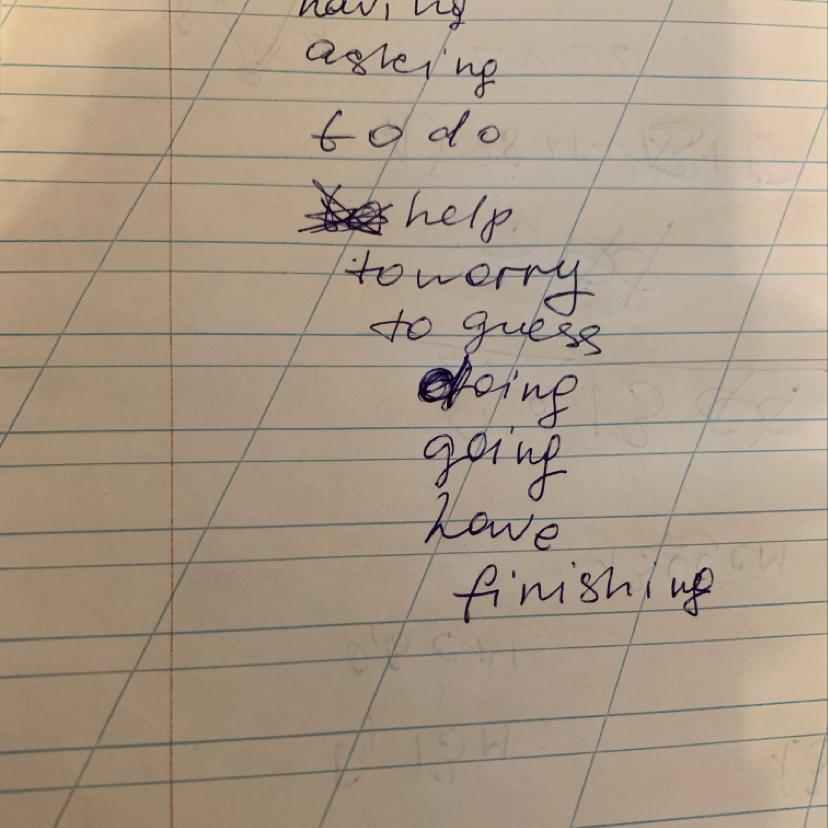 having
asking
to do
help
to worry
to guess
doing
going
have
finishing